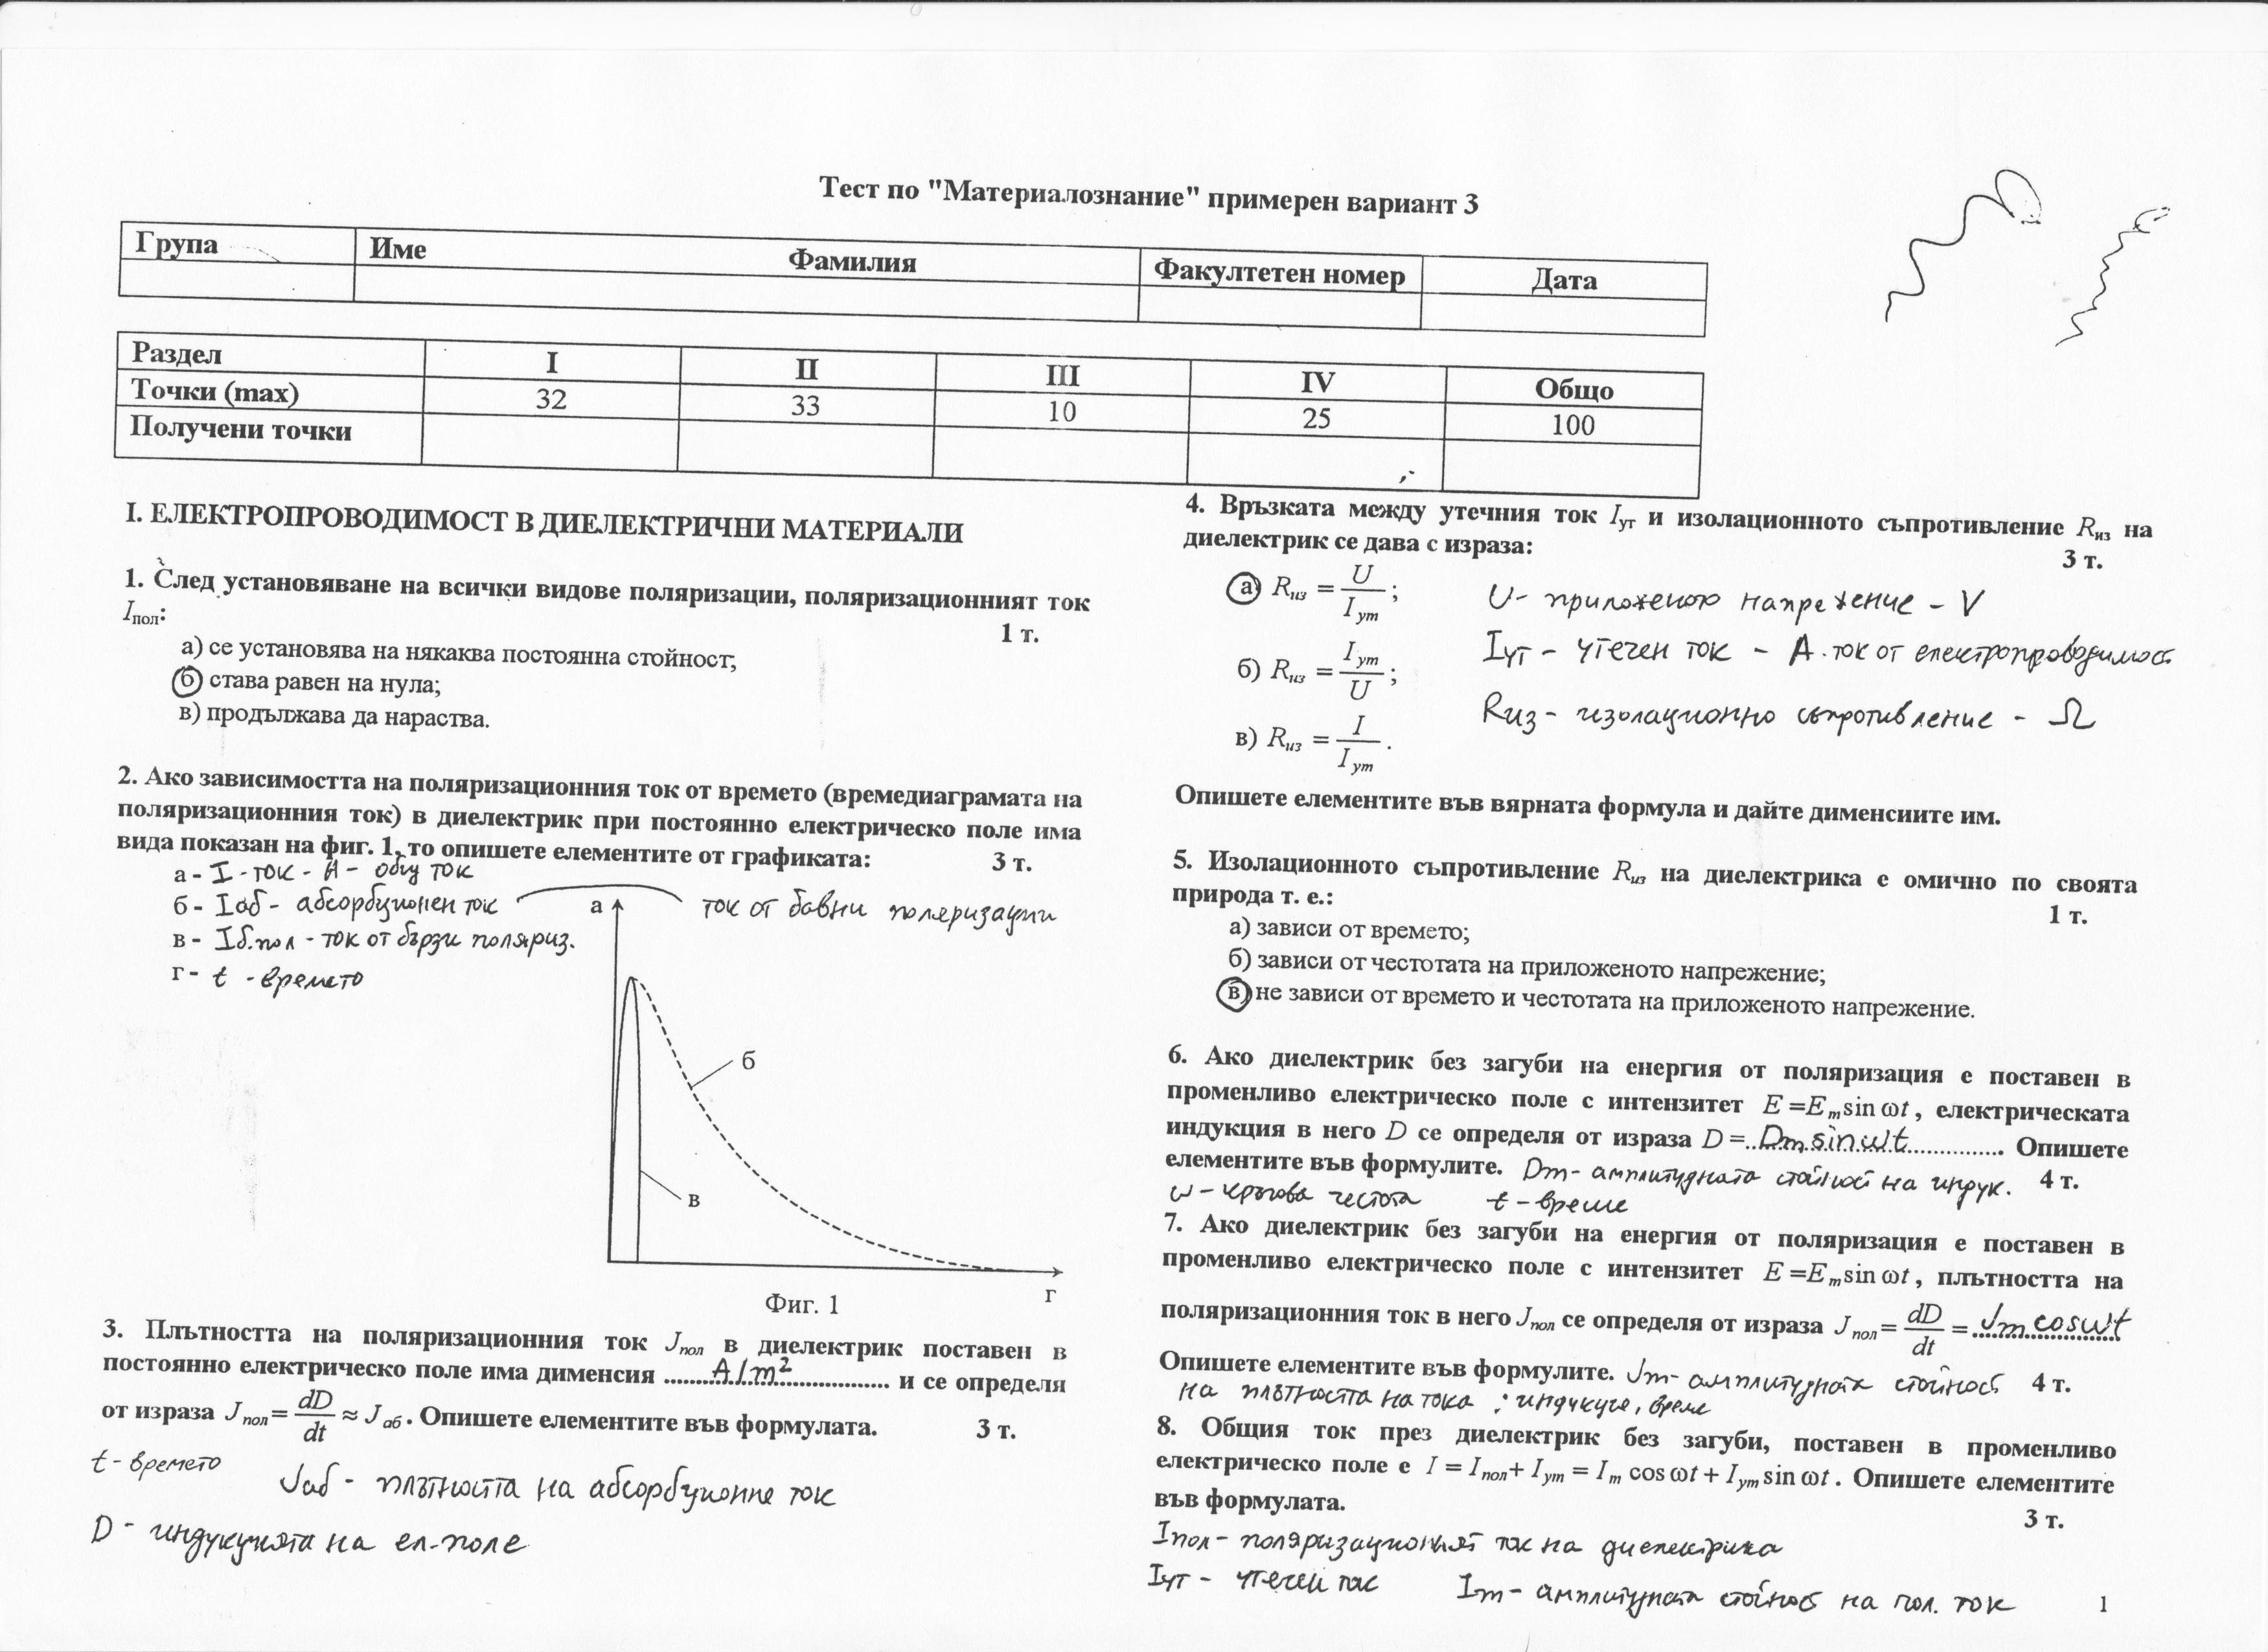 Тест по "Материалознание" примерен вариант 3
Група Име Фамилия Факултетен номер Дата
Раздел I II III IV Общо
Точки (max) 32 33 10 25 100
Получени точки
I. ЕЛЕКТРОПРОВОДИМОСТ В ДИЕЛЕКТРИЧНИ МАТЕРИАЛИ
1. След установяване на всички видове поляризации, поляризационният ток
Iпол: 1 т.
а) се установява на някаква постоянна стойност;
б) става равен на нула;
в) продължава да нараства.
2. Ако зависимостта на поляризационния ток от времето (времедиаграмата на
поляризационния ток) в диелектрик при постоянно електрическо поле има
вида показан на фиг. 1, то опишете елементите от графиката: 3 т.
а - I - ток - А - общ ток
б - Iаб - абсорбционен ток ток от бавни поляризации
в - Iб.пол - ток от бързи поляриз.
г - t - времето
а
б
в
г
Фиг. 1
3. Плътността на поляризационния ток Jпол в диелектрик поставен в
постоянно електрическо поле има дименсия ........A/m²............ и се определя
от израза Jпол = dD/dt ≈ Jаб. Опишете елементите във формулата. 3 т.
t - времето
Jаб - плътността на абсорбционне ток
D - индукцията на ел-поле
4. Връзката между утечния ток Iут и изолационното съпротивление Rиз на
диелектрик се дава с израза: 3 т.
а) Rиз = U/Iут;
U - приложеното напрежение - V
б) Rиз = Iут/U;
Iут - утечен ток - А. ток от електропроводимост
в) Rиз = I/Iут.
Rиз - изолационно съпротивление - Ω
Опишете елементите във вярната формула и дайте дименсиите им.
5. Изолационното съпротивление Rиз на диелектрика е омично по своята
природа т. е.: 1 т.
а) зависи от времето;
б) зависи от честотата на приложеното напрежение;
в) не зависи от времето и честотата на приложеното напрежение.
6. Ако диелектрик без загуби на енергия от поляризация е поставен в
променливо електрическо поле с интензитет E = Em sin ωt, електрическата
индукция в него D се определя от израза D =..Dm sinωt.............. Опишете
елементите във формулите. Dm - амплитудната стойност на индук. 4 т.
ω - кръгова честота t - време
7. Ако диелектрик без загуби на енергия от поляризация е поставен в
променливо електрическо поле с интензитет E = Em sin ωt, плътността на
поляризационния ток в него Jпол се определя от израза Jпол = dD/dt = Jm cosωt
Опишете елементите във формулите. Jm - амплитудната стойност 4 т.
на плътността на тока ; индукция, време
8. Общия ток през диелектрик без загуби, поставен в променливо
електрическо поле е I = Iпол + Iут = Im cos ωt + Iут sin ωt. Опишете елементите
във формулата. 3 т.
Iпол - поляризационният ток на диелектрика
Iут - утечен ток Im - амплитудната стойност на пол. ток
1